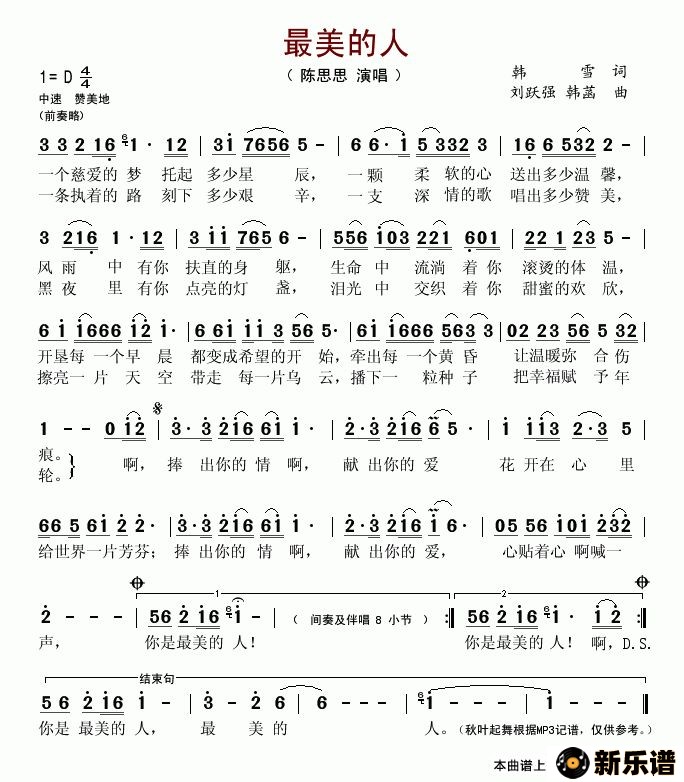 最美的人
1=D 4/4
（陈思思 演唱）
韩 雪 词
中速 赞美地
刘跃强 韩菡 曲
(前奏略)
3 3 3 2 1 6 6 1· 1 2 | 3 1 7 6 5 6 5 - | 6 6· 1 5 3 3 2 3 | 1 6 6 5 3 2 5 -
一个慈爱的 梦 托起 多少星 辰， 一颗 柔 软的心 送出多少温 馨，
一条执着的 路 刻下 多少艰 辛， 一支 深 情的歌 唱出多少赞 美，
3 2 1 6 1· 1 2 | 3 1 1 7 6 5 6 - | 5 5 6 1 0 3 2 2 1 6 0 1 | 2 2 1 2 3 5 -
风 雨 中 有你 扶直的身 躯， 生命 中 流淌 着 你 滚烫的体 温，
黑 夜 里 有你 点亮的灯 盏， 泪光 中 交织 着 你 甜蜜的欢 欣，
6 1 1 6 6 6 1 2 1· | 6 6 1 1 3 3 5 6 5· | 6 1 1 6 6 6 5 6 3 3· | 0 2 2 3 5 6 5 3 2
开垦每 一个早 晨 都变成希望的开 始，牵出每 一个黄 昏 让温暖弥 合伤
擦亮一 片天 空 带走 每一片乌 云，播下一 粒种 子 把幸福赋 予年
1 - - 0 1 2 | 3· 3 2 1 6 6 1 1· | 3· 3 2 1 6 6 5· | 1 1 1 3 2· 3 5
痕。 啊， 捧 出你的 情 啊， 献 出你的 爱 花 开在 心 里
轮。
6 6 5 6 1 2 2· | 3· 3 2 1 6 6 1 1· | 3· 3 2 1 6 1 6· | 0 5 5 6 1 0 1 2 3 2
给世界一片芳芬；捧 出你的 情 啊， 献 出你的 爱， 心贴着心 啊喊一
1 2
2 - - - | 5 6 2 1 6 6 1 - | （ 间奏及伴唱 8 小节 ） :| 5 6 2 1 6 6 1· 1 2 :|
声， 你是最美的 人！ 你是最美的 人！ 啊，D.S.
结束句
5 6 6 2 1 6 1 | 3 - 2 6 | 6 - - - | 6 1 - - - | 1 - - -
你是 最美的 人， 最 美 的 人。（秋叶起舞根据MP3记谱，仅供参考。）
本曲谱上 新乐谱